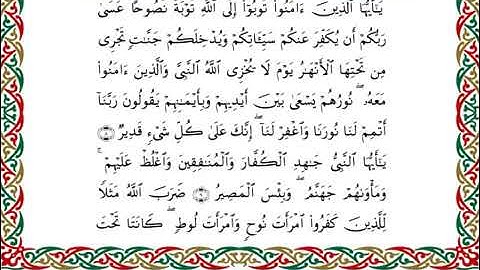 يَـٰٓأَيُّهَا ٱلَّذِينَ ءَامَنُوا۟ تُوبُوٓا۟ إِلَى ٱللَّهِ تَوْبَةً نَّصُوحًا عَسَىٰ
رَبُّكُمْ أَن يُكَفِّرَ عَنكُمْ سَيِّـَٔاتِكُمْ وَيُدْخِلَكُمْ جَنَّـٰتٍ تَجْرِى
مِن تَحْتِهَا ٱلْأَنْهَـٰرُ يَوْمَ لَا يُخْزِى ٱللَّهُ ٱلنَّبِىَّ وَٱلَّذِينَ ءَامَنُوا۟
مَعَهُۥ ۖ نُورُهُمْ يَسْعَىٰ بَيْنَ أَيْدِيهِمْ وَبِأَيْمَـٰنِهِمْ يَقُولُونَ رَبَّنَآ
أَتْمِمْ لَنَا نُورَنَا وَٱغْفِرْ لَنَآ ۖ إِنَّكَ عَلَىٰ كُلِّ شَىْءٍ قَدِيرٌ ۝٨
يَـٰٓأَيُّهَا ٱلنَّبِىُّ جَـٰهِدِ ٱلْكُفَّارَ وَٱلْمُنَـٰفِقِينَ وَٱغْلُظْ عَلَيْهِمْ ۚ
وَمَأْوَىٰهُمْ جَهَنَّمُ ۖ وَبِئْسَ ٱلْمَصِيرُ ۝٩ ضَرَبَ ٱللَّهُ مَثَلًا
لِّلَّذِينَ كَفَرُوا۟ ٱمْرَأَتَ نُوحٍ وَٱمْرَأَتَ لُوطٍ ۖ كَانَتَا تَحْتَ